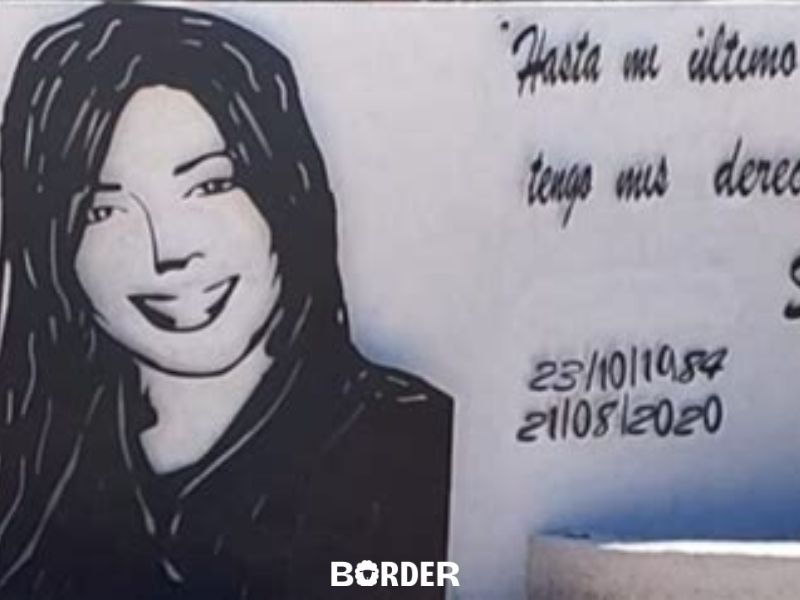 "Hasta mi último
tengo mis derec
S
23/10/1984
21/08/2020
BORDER